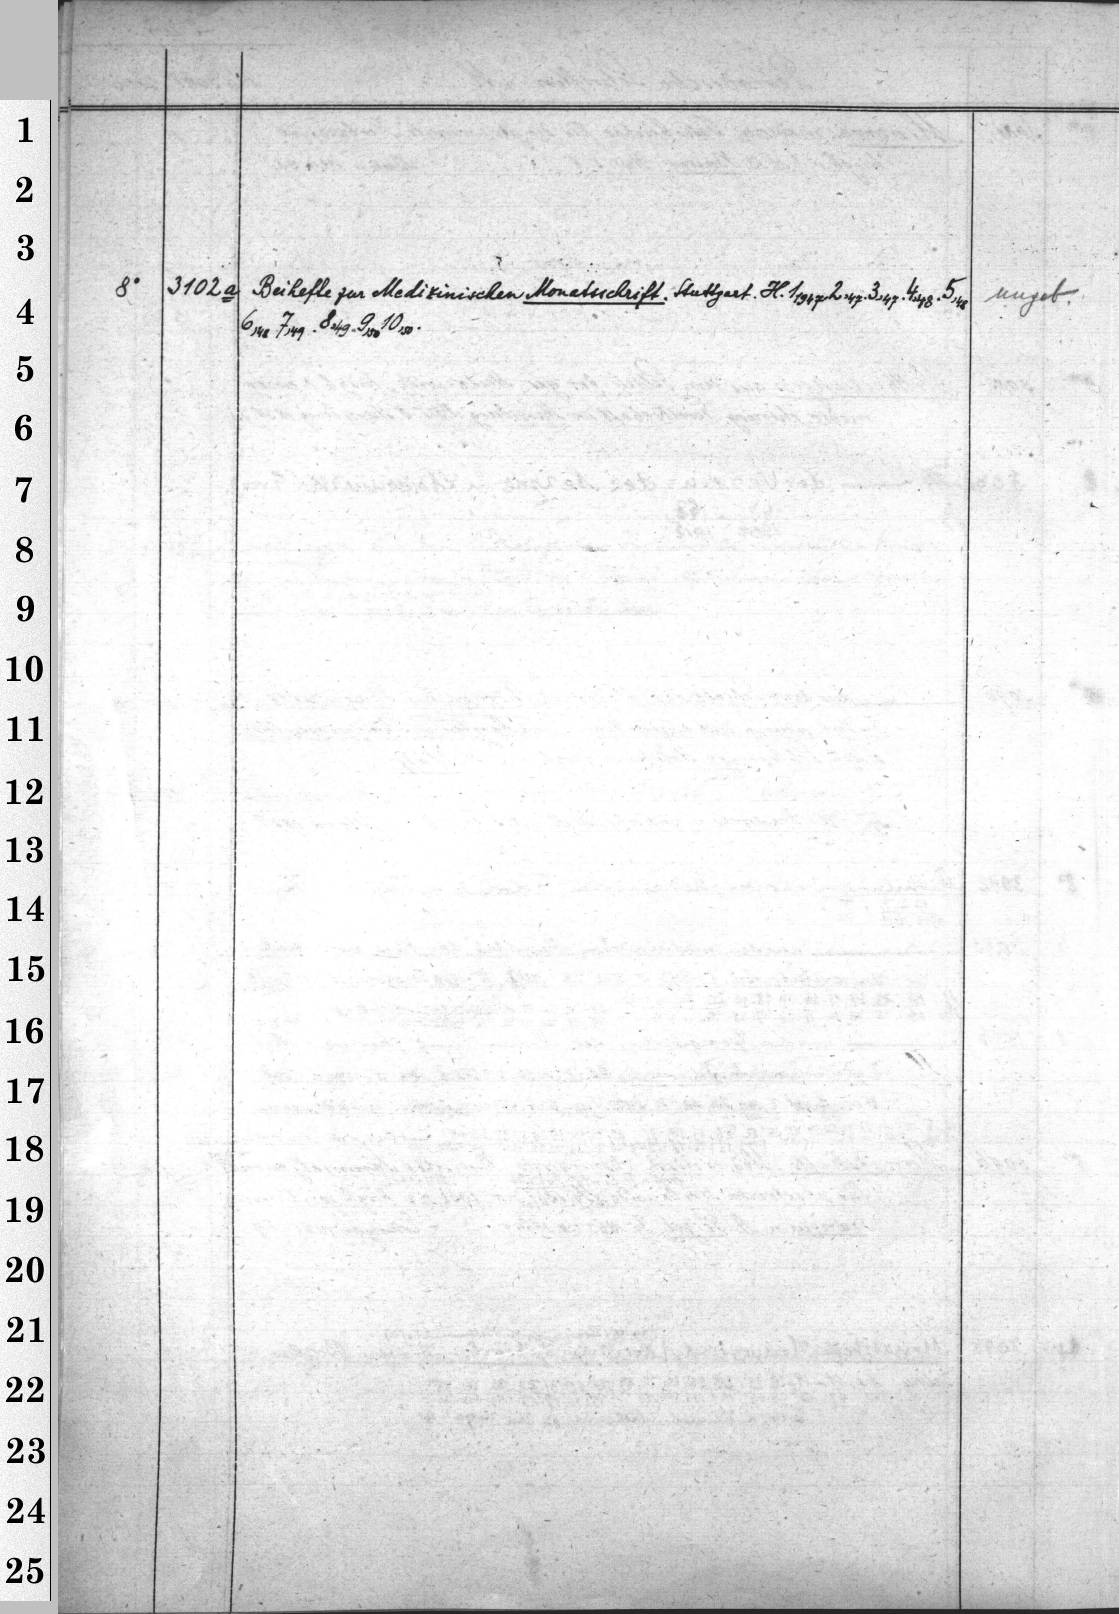 1
2
3
8° 3102a Beihefte zur Medizinischen Monatsschrift. Stuttgart. H. 1,1947. 2,47. 3,47. 4,48. 5,48 ungeb.
4
6,48 7,49. 8,49. 9,50 10,50.
5
6
7
8
9
10
11
12
13
14
15
16
17
18
19
20
21
22
23
24
25